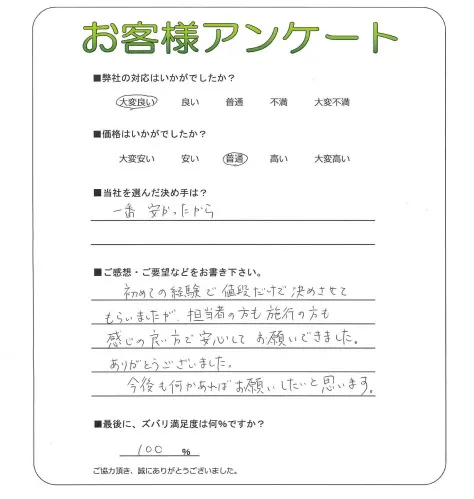 お客様アンケート
■弊社の対応はいかがでしたか?
大変良い 良い 普通 不満 大変不満
■価格はいかがでしたか?
大変安い 安い 普通 高い 大変高い
■当社を選んだ決め手は?
一番 安かったから
■ご感想・ご要望などをお書き下さい。
初めての経験で値段だけで決めさせて
もらいましたが、担当者の方も施行の方も
感じの良い方で安心してお願いできました。
ありがとうございました。
今後も何かあればお願いしたいと思います。
■最後に、ズバリ満足度は何%ですか?
100 %
ご協力頂き、誠にありがとうございました。